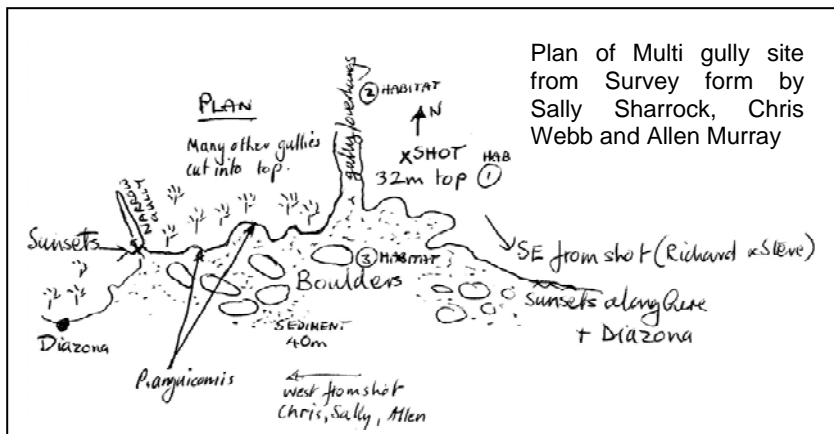 Plan of Multi gully site
from Survey form by
Sally Sharrock, Chris
Webb and Allen Murray
PLAN
Many other gullies
cut into top.
gully/overhangs
② HABITAT
N
x SHOT
32m top
HAB
①
NARROW
GULLY
Sunsets
SE from shot (Richard & Steve)
③ HABITAT
Boulders
Sunsets along here
+ Diazona
Diazona
SEDIMENT
40m
P. anguicomis
West from shot
Chris, Sally, Allen